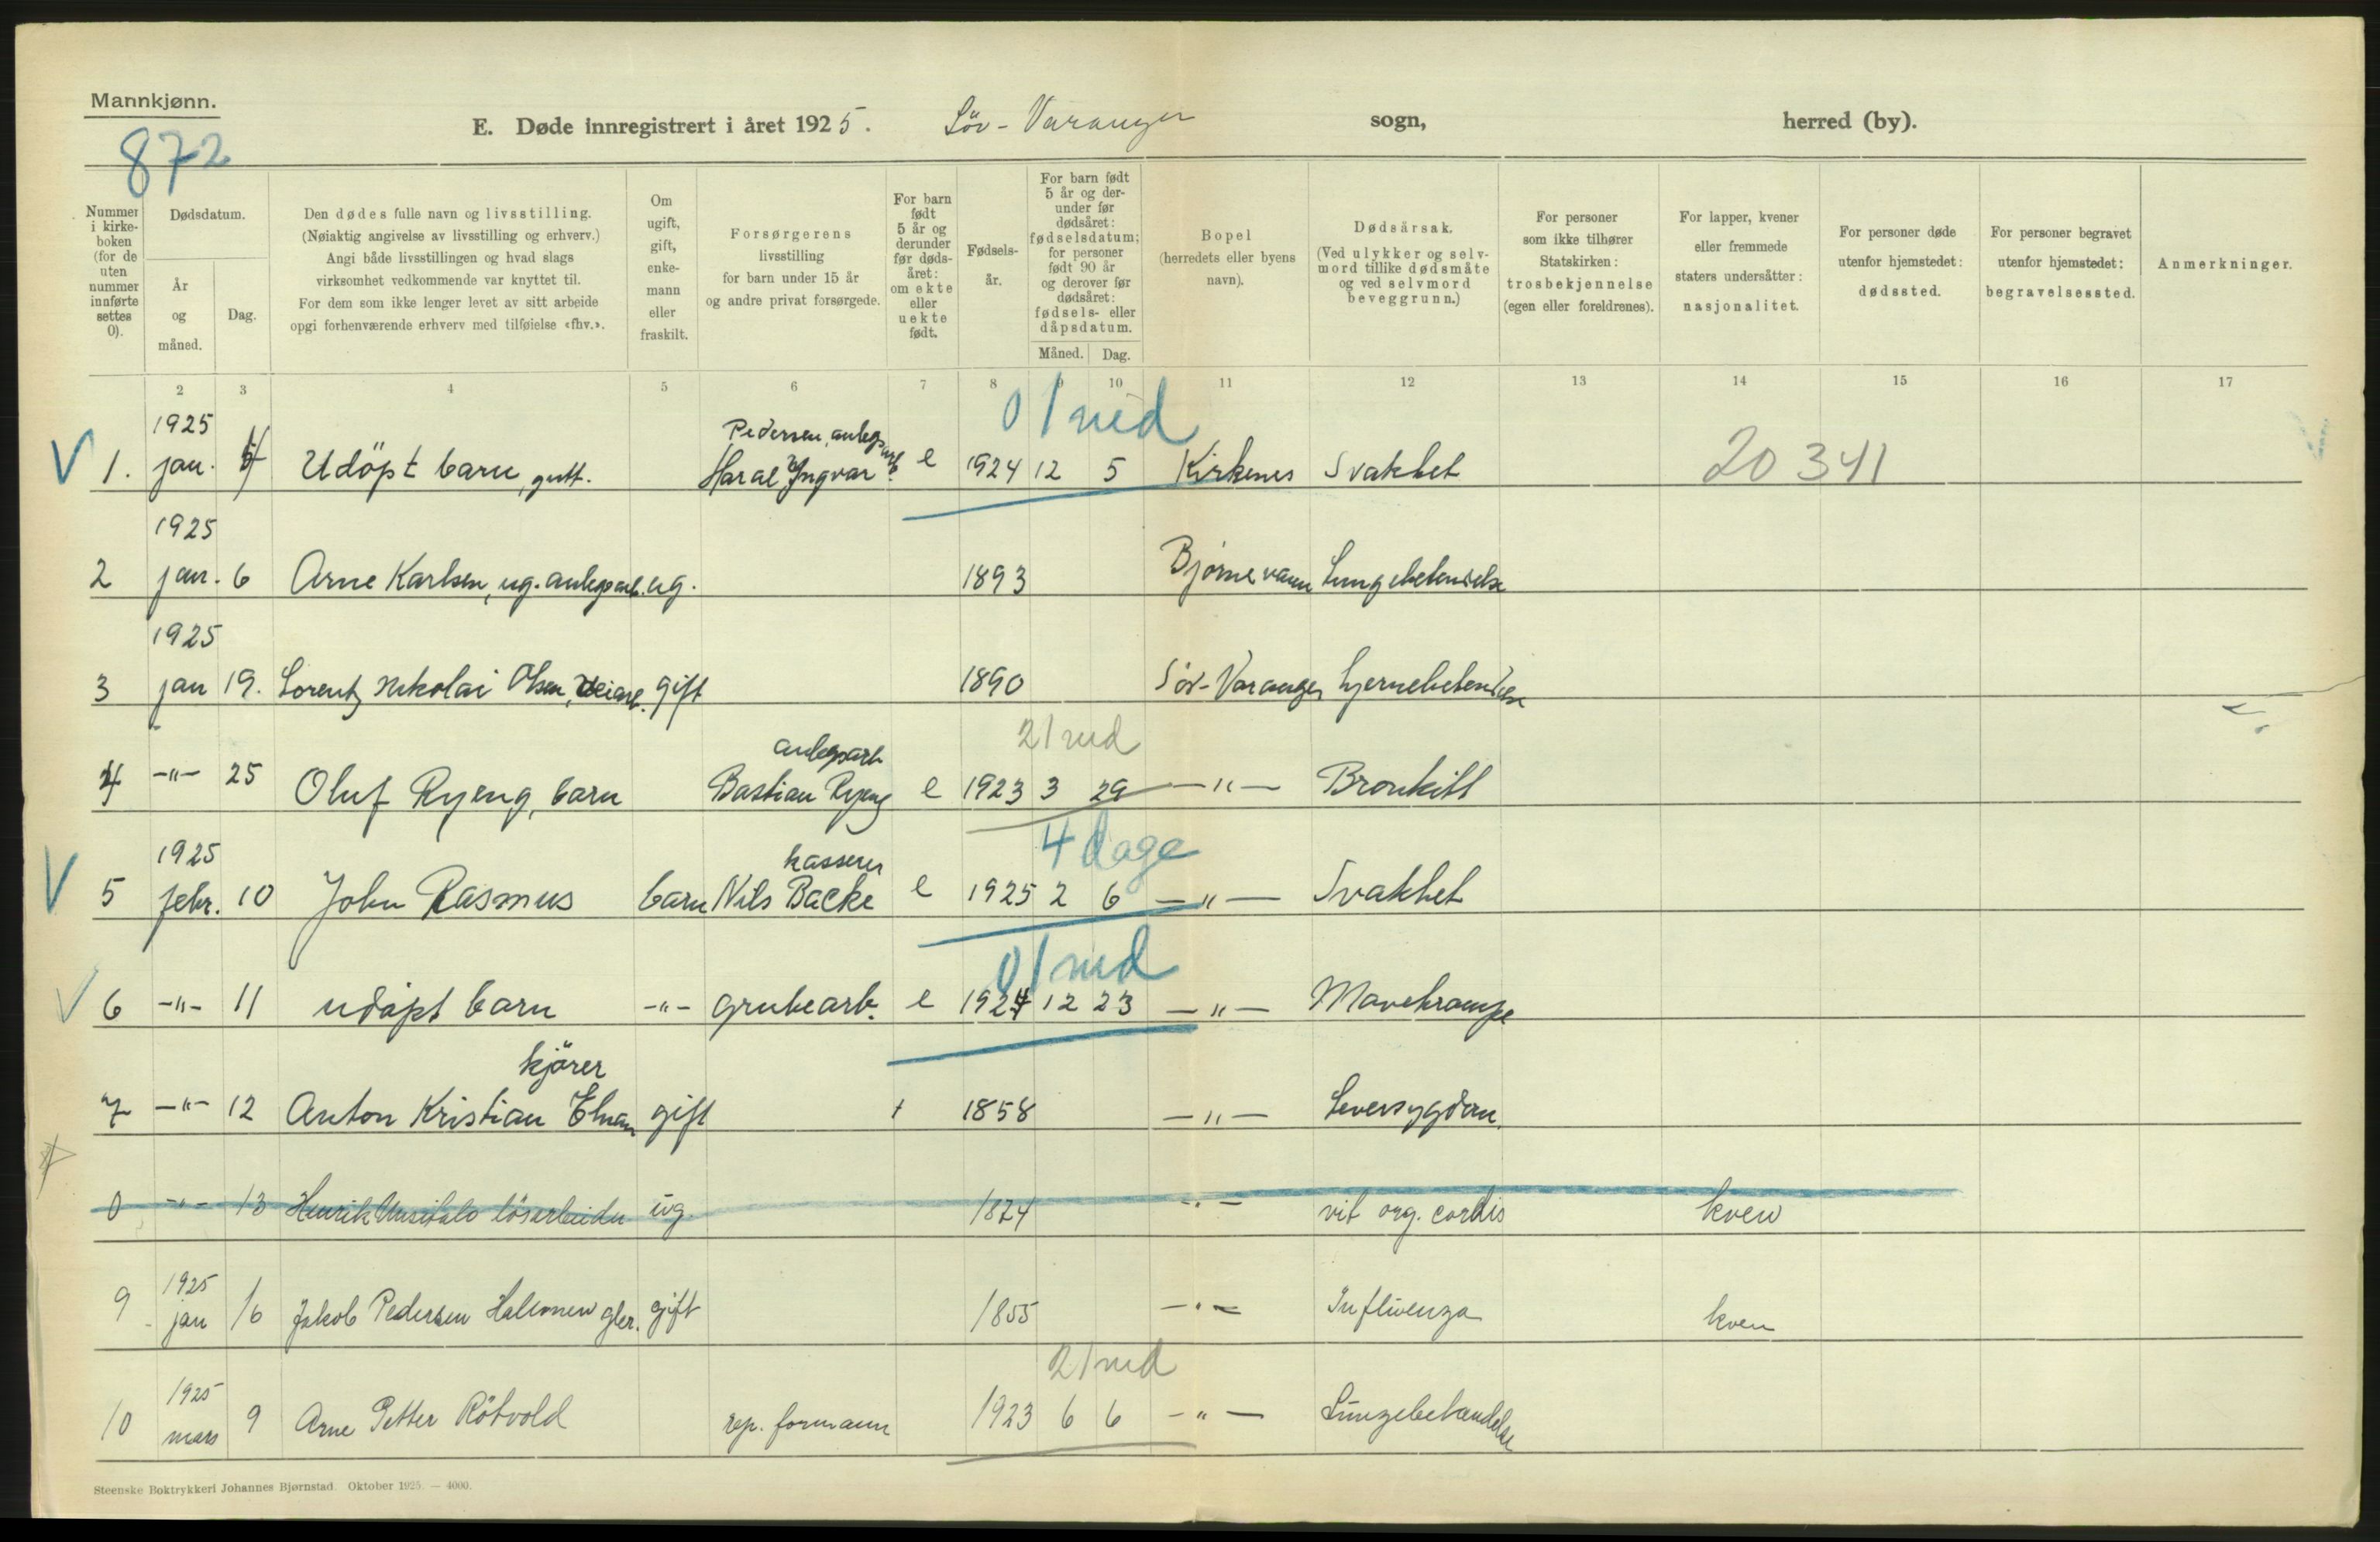 Mannkjønn.
872
E. Døde innregistrert i året 1925. Söv-Varanger sogn, herred (by).
Nummer i kirkeboken (for de uten nummer innførte settes 0).
Dødsdatum.
År og måned.
Dag.
Den dødes fulle navn og livsstilling.
(Nøiaktig angivelse av livsstilling og erhverv.)
Angi både livsstillingen og hvad slags
virksomhet vedkommende var knyttet til.
For dem som ikke lenger levet av sitt arbeide
opgi forhenværende erhverv med tilføielse «fhv.».
Om ugift, gift, enkemann eller fraskilt.
Forsørgerens livsstilling for barn under 15 år og andre privat forsørgede.
For barn født 5 år og derunder før dødsåret: om ekte eller uekte født.
Fødselsår.
For barn født 5 år og derunder før dødsåret: fødselsdatum; for personer født 90 år og derover før dødsåret: fødsels- eller dåpsdatum.
Måned. Dag.
Bopel (herredets eller byens navn).
Dødsårsak. (Ved ulykker og selvmord tillike dødsmåte og ved selvmord beveggrunn.)
For personer som ikke tilhører Statskirken: trosbekjennelse (egen eller foreldrenes).
For lapper, kvener eller fremmede staters undersåtter: nasjonalitet.
For personer døde utenfor hjemstedet: dødssted.
For personer begravet utenfor hjemstedet: begravelsessted.
Anmerkninger.
2 3 4 5 6 7 8 9 10 11 12 13 14 15 16 17
0/med
1925 Pedersen, anlegsarb.
V 1. jan. Udöpt barn, gutt. Haral Yngvar e 1924 12 5 Kirkenes Svakhet 20341
1925
2 jan. 6 Arne Karlsen, ug. anlegsarb. ug. 1893 Bjørnevann Lungebetendelse
1925
3 jan 19. Lorentz Nikolai Olsen, veiarb. gift 1890 Söv-Varanger hjernebetendelse
anlegsarb 2/med
4 -"- 25 Oluf Ryeng, barn Bastian Ryeng e 1923 3 29 -"- Bronkitt
1925 kasserer 4 dage
V 5 febr. 10 John Rasmus barn Nils Backe e 1925 2 6 -"- Svakhet
0/med
V 6 -"- 11 udöpt barn -"- grubearb. e 1924 12 23 -"- Mavekrampe
kjörer
7 -"- 12 Anton Kristian gift 1858 -"- Leversygdom
0 -"- 13 Henrik Uusitalo lösarbeider ug 1874 -"- vit org. cordis kven
1925
9 jan 16 Jakob Pedersen gift 1855 -"- Influenza kven
2/med
1925
10 mars 9 Arne Petter Rötvold rep. formann 1923 6 6 -"- Lungebetændelse
Steenske Boktrykkeri Johannes Bjørnstad. Oktober 1925. — 4000.